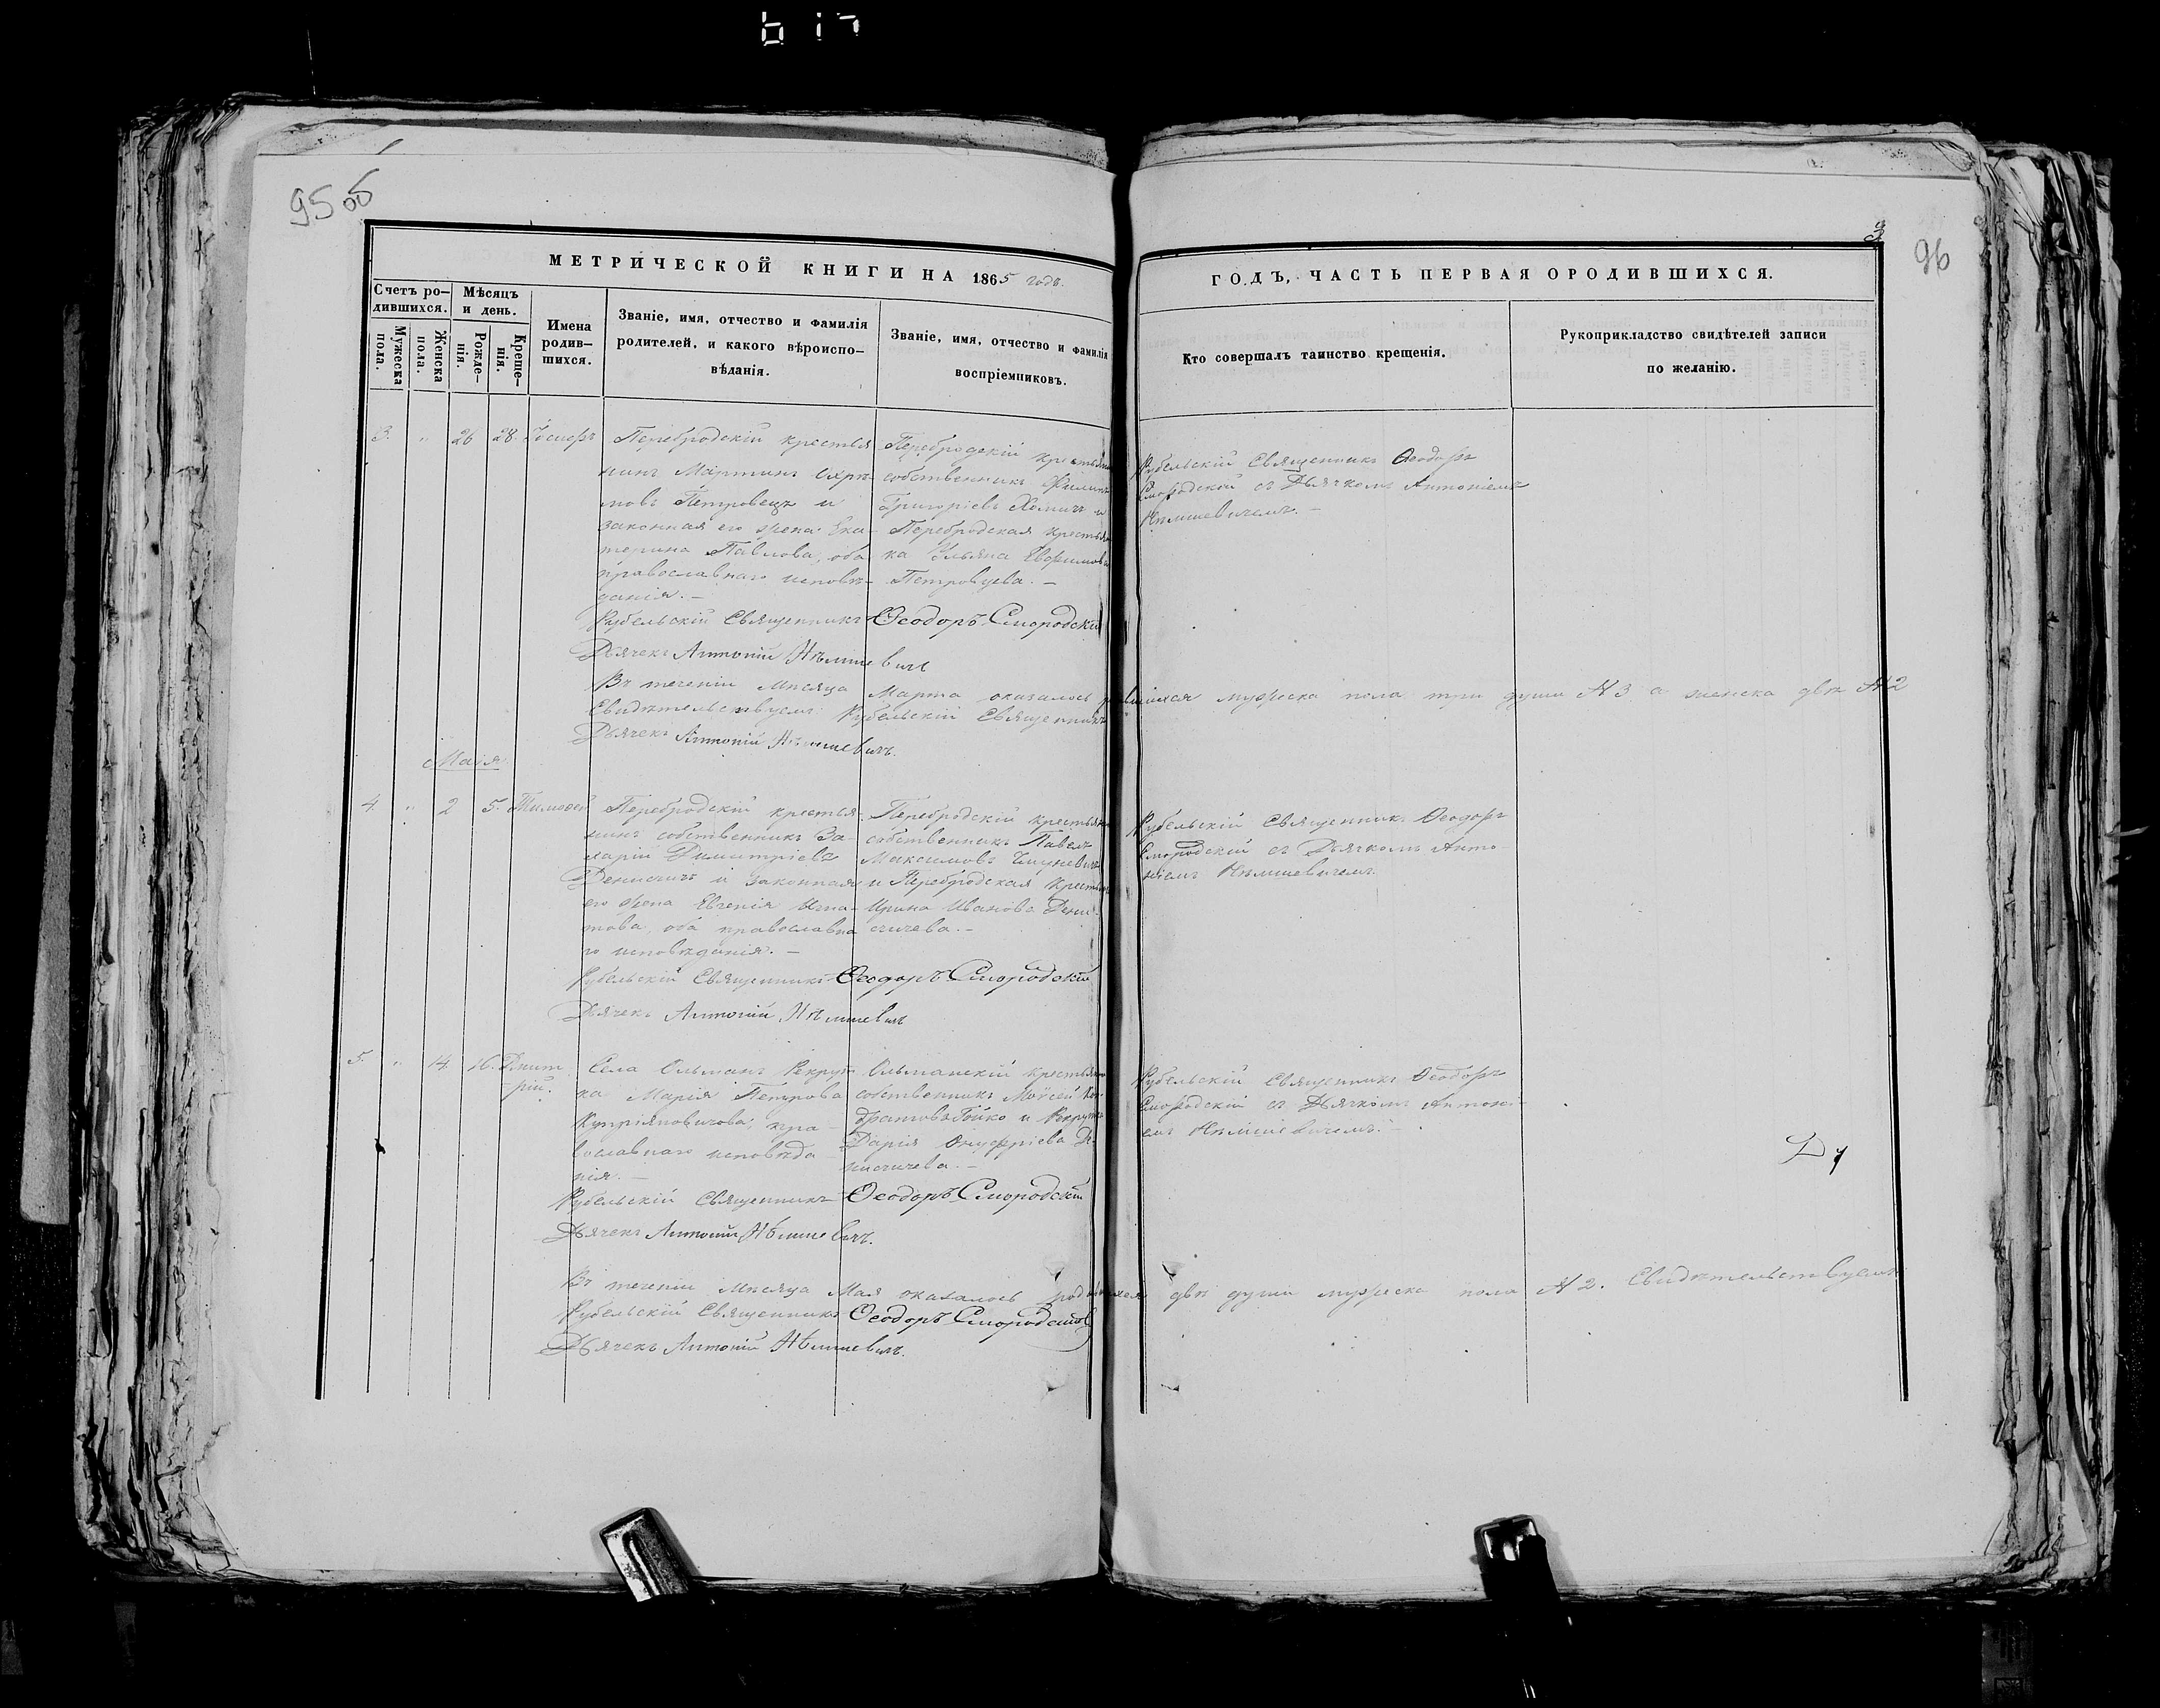 95 об
3
96
МЕТРИЧЕСКОЙ КНИГИ НА 1865 годъ.
ГОДЪ, ЧАСТЬ ПЕРВАЯ ОРОДИВШИХСЯ.
Счетъ ро-
дившихся.
Мужеска
пола.
Женска
пола.
Мѣсяцъ
и день.
Рожде-
нія.
Креще-
нія.
Имена
родив-
шихся.
Званіе, имя, отчество и фамилія
родителей, и какого вѣроиспо-
вѣданія.
Званіе, имя, отчество и фамилія
воспріемниковъ.
Кто совершалъ таинство крещенія.
Рукоприкладство свидѣтелей записи
по желанію.
3. " 26 28. Іосифъ
Перебродскій крестья
нинъ Мартинъ
мовъ Петровецъ и
законная его жена Ека-
терина Павлова, оба
православнаго исповѣ-
данія. —
Перебродскій крестьян
собственникъ Филипъ
Григоріевъ Хомичъ и
Перебродская крестья
ка Ульяна Евфимова
Петровцева. —
Рубельскій Священникъ Ѳеодоръ
Смородскій съ Дьячкомъ Антоніемъ
Нѣмшевичемъ. —
Рубельскій Священникъ Ѳеодоръ Смородскій
Дьячекъ Антоній Нѣмшевичъ
Въ теченіи Мѣсяца Марта оказалось родившихся мужеска пола три души №3 а женска двѣ №2
Свидѣтельствуемъ: Рубельскій Священникъ
Дьячекъ Антоній Нѣмшевичъ.
Маія
4 " 2 5. Тимоѳей
Перебродскій крестья-
нинъ собственникъ За-
харій Димитріевъ
Денисчичъ и законная
его жена Евгенія Игна-
това, оба православна
го исповѣданія. —
Перебродскій крестьян
собственникъ Павелъ
Максимовъ
и Перебродская крестьян
Ирина Иванова Дени-
счичева. —
Рубельскій Священникъ Ѳеодоръ
Смородскій съ Дьячкомъ Анто-
ніемъ Нѣмшевичемъ.
Рубельскій Священникъ Ѳеодоръ Смородскій
Дьячекъ Антоній Нѣмшевичъ
5. " 14. 16. Димит
-рій.
Села Ольманъ Рекрут
ка Марія Петрова
Купріяновичова, пра-
вославнаго исповѣда-
нія. —
Ольманскій крестьян
собственникъ Моѵсей Кон-
дратовъ Бойко и Рекрутка
Дарія Онуфріева Де-
нисчичева. —
Рубельскій Священникъ Ѳеодоръ
Смородскій съ Дьячкомъ Антоні-
емъ Нѣмшевичемъ. —
Рубельскій Священникъ Ѳеодоръ Смородскій
Дьячекъ Антоній Нѣмшевичъ.
Въ теченіи Мѣсяца Мая оказалось родившихся двѣ души мужеска пола №2. Свидѣтельствуемъ
Рубельскій Священникъ Ѳеодоръ Смородскій
Дьячекъ Антоній Нѣмшевичъ.